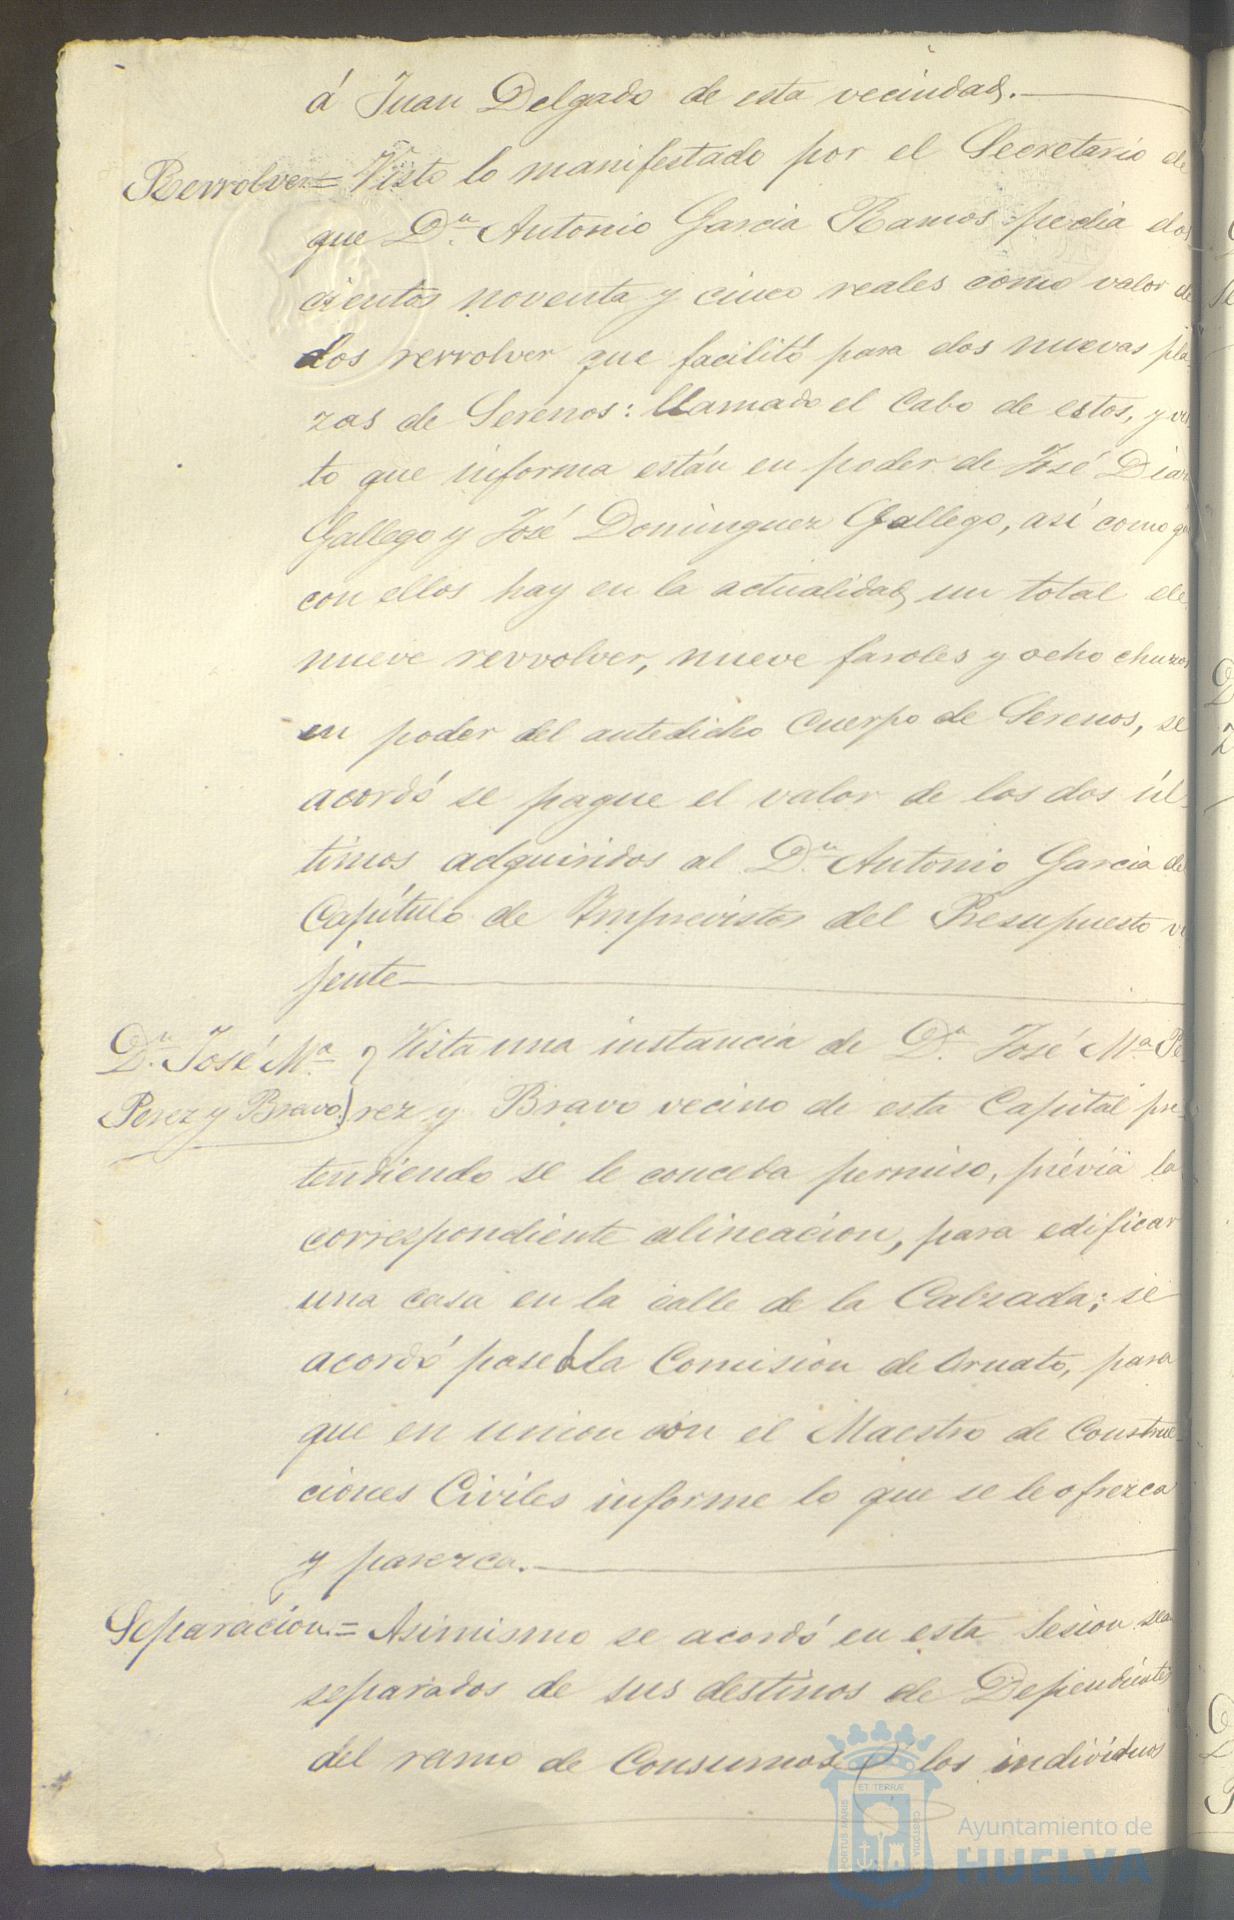 á Juan Delgado de esta vecindad.
Revrolver= Visto lo manifestado por el Secretario de
que Dn. Antonio Garcia Ramos pedia dos
cientos noventa y cinco reales como valor de
dos revrolver que facilitó para dos nuevas pla
zas de Serenos: llamado el Cabo de estos, y vis
to que informa están en poder de José Diaz
Gallego y José Dominguez Gallego, así como qe
con ellos hay en la actualidad un total de
nueve revvolver, nueve faroles y ocho chuzos
en poder del antedicho Cuerpo de Serenos, se
acordó se pague el valor de los dos úl-
timos adquiridos al Dn. Antonio Garcia de
Capítulo de Imprevistos del Presupuesto vi
jente
Dn. José Ma. Vista una instancia de Dn. José Ma. Pe
Perez y Bravo) rez y Bravo vecino de esta Capital pre-
tendiendo se le conceda permiso, prévia la
correspondiente alineacion, para edificar
una casa en la calle de la Calzada; se
acordó pase á la Comision de Ornato, para
que en union con el Maestro de Construc-
ciones Civiles informe lo que se le ofrezca
y parezca.
Separacion.= Asimismo se acordó en esta Sesion sean
separados de sus destinos de Dependientes
del ramo de Consumos los individuos
PORTUS MARIS ET TERRÆ CUSTODIA
Ayuntamiento de
HUELVA